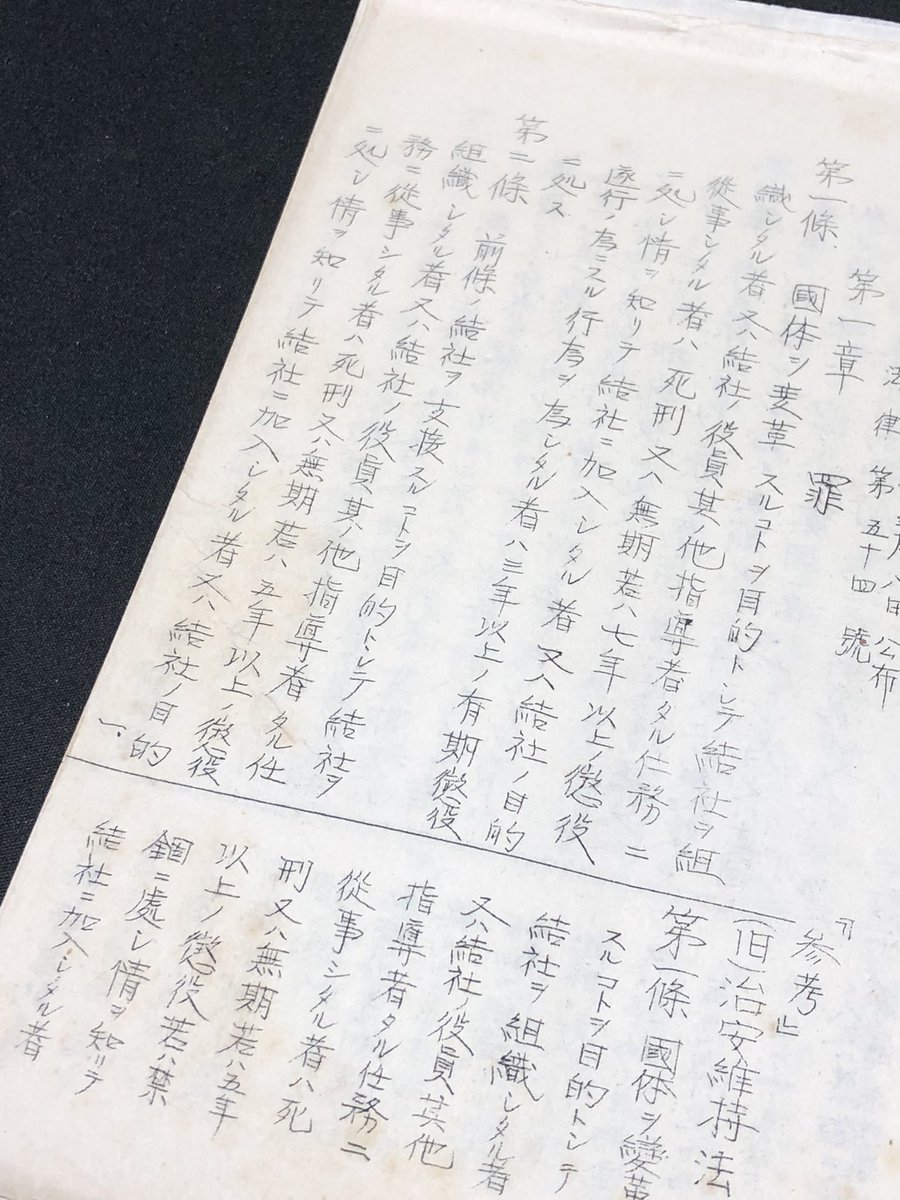 公布
法律第五十四號
第一章　罪
第一條、國体ヲ変革スルコトヲ目的トシテ結社ヲ組
織シタル者又ハ結社ノ役員其ノ他指導者タル任務ニ
從事シタル者ハ死刑又ハ無期若ハ七年以上ノ懲役
ニ処シ情ヲ知リテ結社ニ加入シタル者又ハ結社ノ目的
遂行ノ為ニスル行為ヲ為シタル者ハ三年以上ノ有期懲役
ニ処ス
第二條　前條ノ結社ヲ支援スルコトヲ目的トシテ結社ヲ
組織シタル者又ハ結社ノ役員其ノ他指導者タル任
務ニ從事シタル者ハ死刑又ハ無期若ハ五年以上ノ懲役
ニ処シ情ヲ知リテ結社ニ加入シタル者又ハ結社ノ目的
「参考」
(旧)治安維持法
第一條　國体ヲ變革
スルコトヲ目的トシテ
結社ヲ組織シタル者
又ハ結社ノ役員其他
指導者タル任務ニ
從事シタル者ハ死
刑又ハ無期若ハ五年
以上ノ懲役若ハ禁
錮ニ處シ情ヲ知リテ
結社ニ加入シタル者